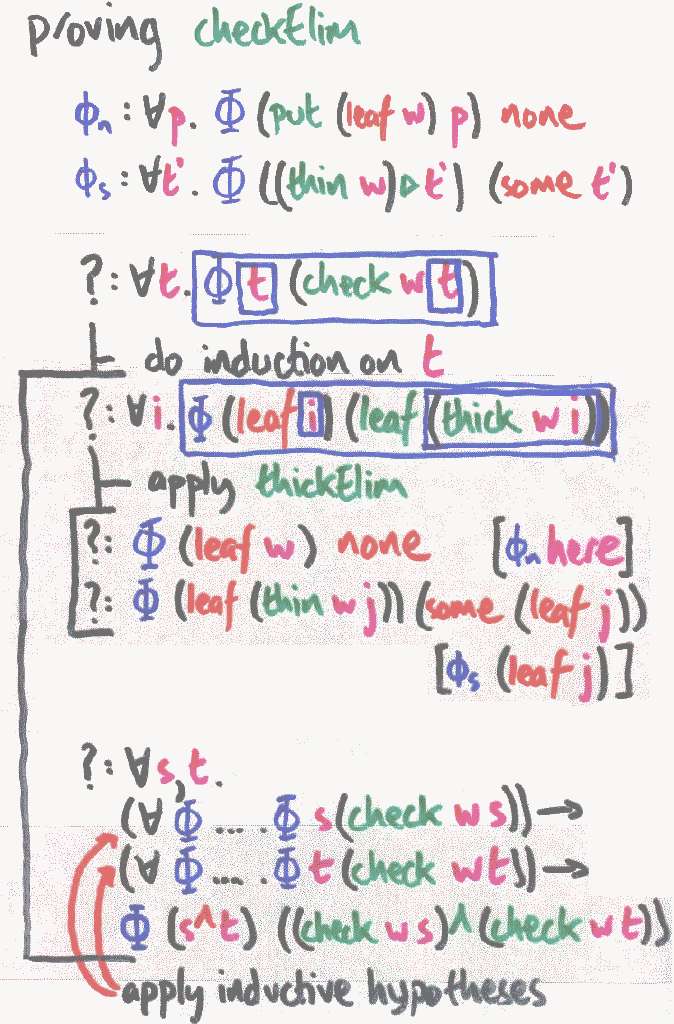 proving checkElim
ϕₙ : ∀p. Φ (put (leaf w) p) none
ϕₛ : ∀t'. Φ ((thin w)▹t') (some t')
? : ∀t. Φ t (check w t)
do induction on t
? : ∀i. Φ (leaf i) (leaf (thick w i))
apply thickElim
? : Φ (leaf w) none [ϕₙ here]
? : Φ (leaf (thin w j)) (some (leaf j))
[ϕₛ (leaf j)]
? : ∀s,t.
(∀ Φ ... . Φ s (check w s)) →
(∀ Φ ... . Φ t (check w t)) →
Φ (s^t) ((check w s)^(check w t))
apply inductive hypotheses